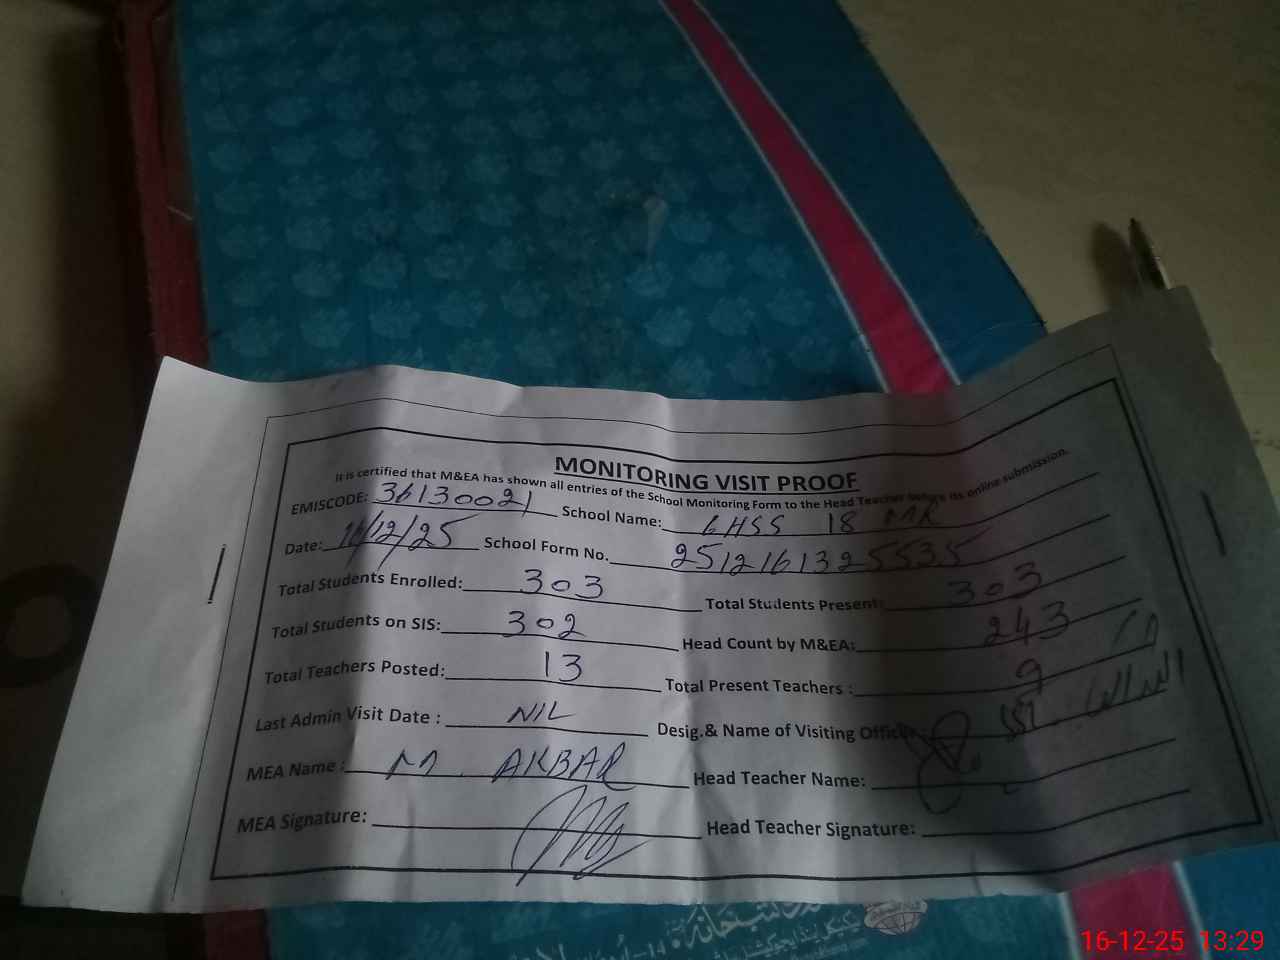 MONITORING VISIT PROOF
It is certified that M&EA has shown all entries of the School Monitoring Form to the Head Teacher before its online submission.
EMISCODE: 36130021 School Name: GHSS 18
Date: 16/12/25 School Form No. 2512161325535
Total Students Enrolled: 303 Total Students Present: 303
Total Students on SIS: 302 Head Count by M&EA: 243
Total Teachers Posted: 13 Total Present Teachers : 9
Last Admin Visit Date : NIL Desig.& Name of Visiting Officer
MEA Name : M. AKBAR Head Teacher Name:
MEA Signature: Head Teacher Signature:
16-12-25 13:29